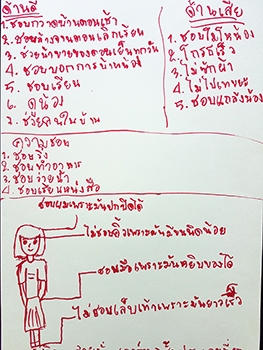 ด้านดี
1. ชอบกวาดบ้านตอนเช้า
2. ชอบล้างจานตอนเลิกเรียน
3. ช่วยน้าขายของตอนเย็นทุกวัน
4. ชอบบอกการบ้านน้อง
5. ชอบเรียน
6. ดูน้อง
7. ช่วยคนในบ้าน
ด้านเสีย
1. ชอบโมโหน้อง
2. โกรธเร็ว
3. ไม่พักผ้า
4. ไม่ไปเทขยะ
5. ชอบแกล้งน้อง
ความชอบ
1. ชอบวิ่ง
2. ชอบทำอาหาร
3. ชอบว่ายน้ำ
4. ชอบเรียนหนังสือ
ชอบผมเพราะมันปกปิดได้
ไม่ชอบคิ้วเพราะมันมีขนนิดน้อย
ชอบมือเพราะมันหยิบของได้
ไม่ชอบเล็บเท้าเพราะมันยาวเร็ว